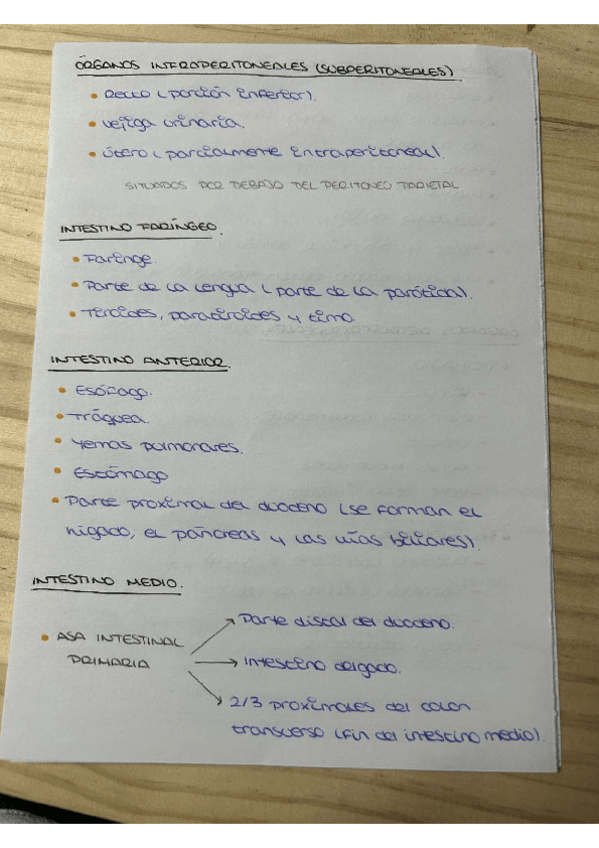 ÓRGANOS INFRAPERITONEALES (SUBPERITONEALES)
• Recto (porción inferior).
• Vejiga urinaria.
• Útero (parcialmente intraperitoneal).
SITUADOS POR DEBAJO DEL PERITONEO PARIETAL
INTESTINO FARÍNGEO.
• Faringe.
• Parte de la lengua (parte de la parótida).
• Tiroides, paratiroides y timo.
INTESTINO ANTERIOR.
• Esófago.
• Tráquea.
• Yemas pulmonares.
• Estómago
• Parte proximal del duodeno (se forman el
hígado, el páncreas y las vías biliares).
INTESTINO MEDIO.
• ASA INTESTINAL
PRIMARIA
→ Parte distal del duodeno.
→ Intestino delgado.
→ 2/3 proximales del colon
transverso (fin del intestino medio).